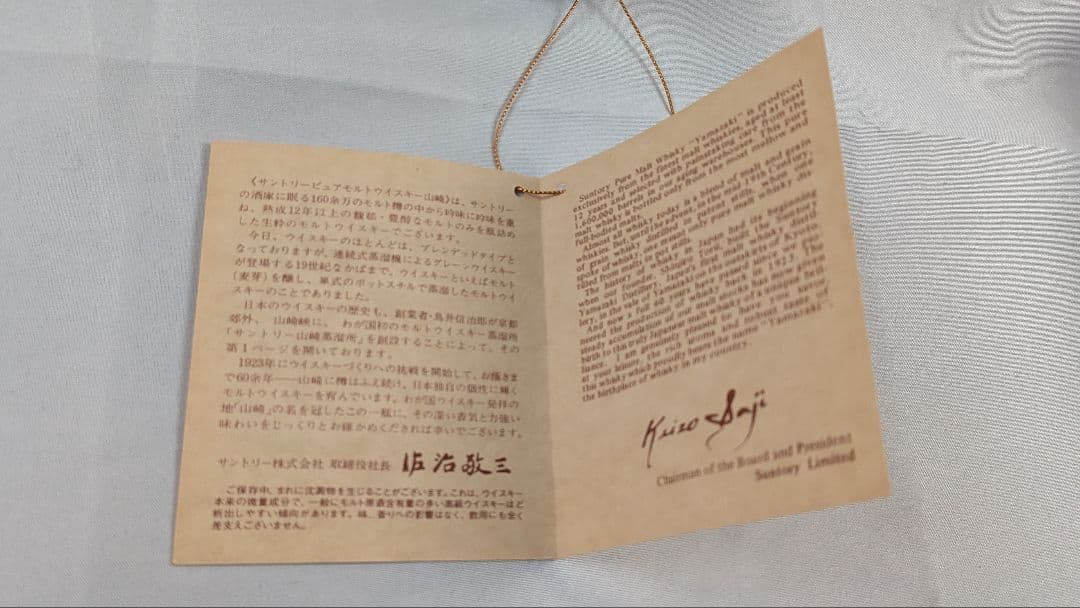 《サントリーピュアモルトウイスキー山崎》は、サントリー
の酒庫に眠る160余万のモルト樽の中から吟味に吟味を重
ね、熟成12年以上の馥郁・豊醇なモルトのみを瓶詰め
した生粋のモルトウイスキーでございます。
今日、ウイスキーのほとんどは、ブレンデッドタイプと
なっておりますが、連続式蒸溜機によるグレーンウイスキー
が登場する19世紀なかばまで、ウイスキーといえばモルト
(麦芽)を醸し、単式のポットスチルで蒸溜したモルトウイ
スキーのことでありました。
日本のウイスキーの歴史も、創業者・鳥井信治郎が京都
郊外、山崎峡に、わが国初のモルトウイスキー蒸溜所
「サントリー山崎蒸溜所」を創設することによって、その
第1ページを開いております。
1923年にウイスキーづくりへの挑戦を開始して、お蔭さま
で60余年──山崎に樽はふえ続け、日本独自の個性に輝く
モルトウイスキーを育んでいます。わが国ウイスキー発祥の
地「山崎」の名を冠したこの一瓶に、その深い香気と力強い
味わいをじっくりとお確かめくだされば幸いでございます。
サントリー株式会社 取締役社長 佐治敬三
ご保存中、まれに沈澱物を生じることがございます。これは、ウイスキー
本来の微量成分で、一般にモルト原酒含有量の多い高級ウイスキーほど
析出しやすい傾向があります。味、香りへの影響はなく、飲用にも全く
差支えございません。
Suntory Pure Malt Whisky "Yamazaki" is produced
exclusively from the finest malt whiskies, aged at least
12 years and selected with painstaking care from the
1,600,000 barrels in our aging warehouses. This pure
malt whisky is bottled only from the most mellow and
full-bodied malts.
Almost all whisky today is a blend of malt and grain
spoke of whisky, they meant only pure malt whisky dis-
tilled from malt in pot stills.
The history of whisky in Japan had its beginning
when our founder, Shinjiro Torii, built the Suntory
Yamazaki Distillery, Japan's first malt whisky distil-
lery, in the vale of Yamazaki on the outskirts of Kyoto.
And now a full 60 years have passed since we pio-
neered the production of whisky here in 1923. The
birth to this truly Japanese malt whisky
at your leisure, the rich aroma and robust taste of
this whisky which proudly bears the name "Yamazaki"
the birthplace of whisky in my country.
Keizo Saji
Chairman of the Board and President
Suntory Limited